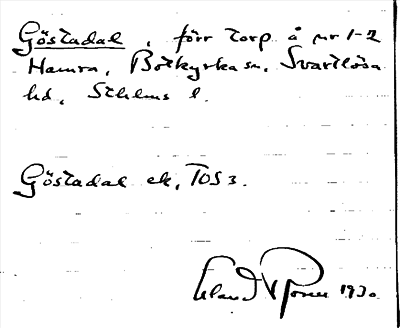 Göstadal, förr torp å nr 1-2
Hamra, Botkyrka sn, Svartlösa
hd, Sthlms l.
Göstadal ek, TOS 3.
Erland Rosen 1930